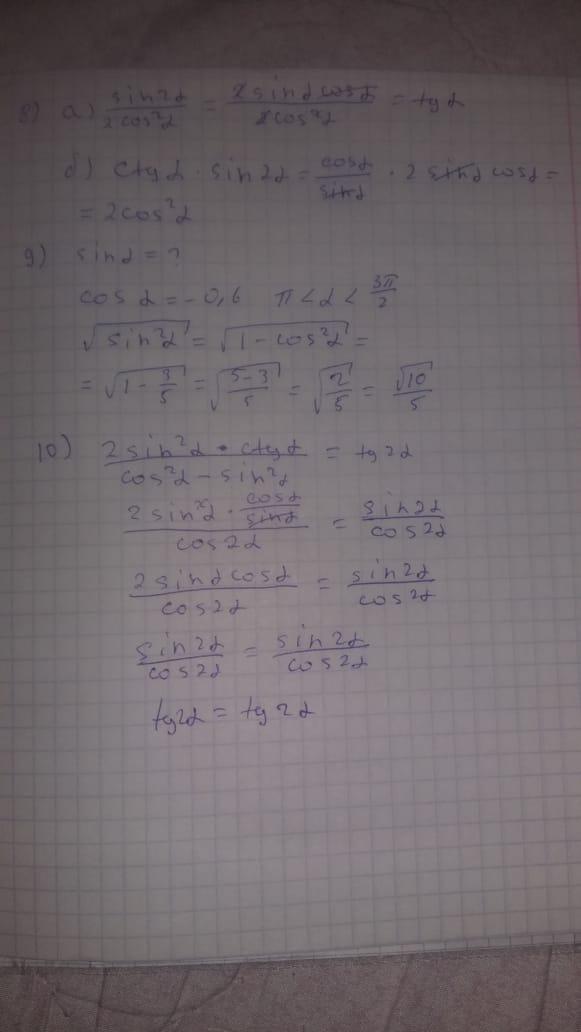 8) а) sin2α/2cos²α = 2sinα cosα/2cos²α = tgα
б) ctgα · sin2α = cosα/sinα · 2 sinα cosα =
= 2cos²α
9) sinα = ?
cosα = -0,6 π < α < 3π/2
√sin²α = √1 - cos²α =
= √1 - 3/5 = √5-3/5 = √2/5 = √10/5
10) 2sin²α · ctgα/cos²α - sin²α = tg2α
2sin²α · cosα/sinα/cos2α = sin2α/cos2α
2sinαcosα/cos2α = sin2α/cos2α
sin2α/cos2α = sin2α/cos2α
tg2α = tg2α